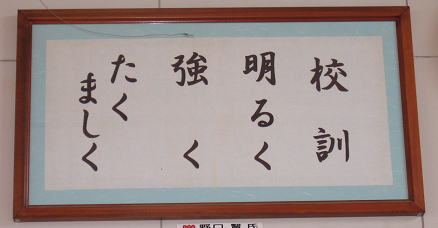 校訓
明るく
強く
たく
ましく